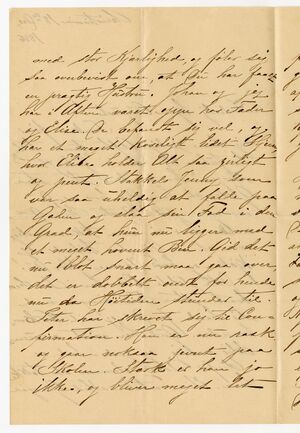 med stor Kjærlighed, og føler sig
saa overbevist om, at Du har faaet
en prægtig Hustru. Johan og jeg
har i Aften været oppe hos Fader
og Elise. De befandt sig vel, og
har et meget koseligt lidet Hjem
hvor Elise holder Alt saa zirligt
og pent. Stakkels Jenny som
var saa uheldig at falde paa
Gaden og slaa sin Fod i den
Grad, at hun nu ligger med
et meget hovent Ben. Gid det
nu blot snart maa gaa over
det er dobbelt ondt for hende
nu da Høitiden stunder til.
Peter har skrevet sig til Con-
firmation. Han er nu rask
og gaar noksaa pent paa
Skolen. Stærk er han jo
ikke, og bliver meget let